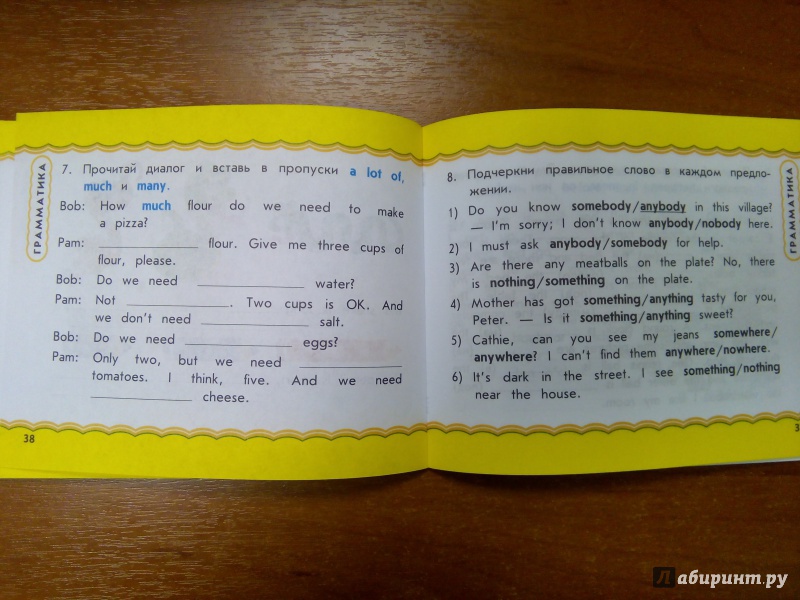 ГРАММАТИКА
7. Прочитай диалог и вставь в пропуски a lot of,
much и many.
Bob: How much flour do we need to make
a pizza?
Pam: ____________ flour. Give me three cups of
flour, please.
Bob: Do we need ____________ water?
Pam: Not ____________. Two cups is OK. And
we don't need ____________ salt.
Bob: Do we need ____________ eggs?
Pam: Only two, but we need ____________
tomatoes. I think, five. And we need
____________ cheese.
38
8. Подчеркни правильное слово в каждом предло-
жении.
1) Do you know somebody/anybody in this village?
— I'm sorry; I don't know anybody/nobody here.
2) I must ask anybody/somebody for help.
3) Are there any meatballs on the plate? No, there
is nothing/something on the plate.
4) Mother has got something/anything tasty for you,
Peter. — Is it something/anything sweet?
5) Cathie, can you see my jeans somewhere/
anywhere? I can't find them anywhere/nowhere.
6) It's dark in the street. I see something/nothing
near the house.
ГРАММАТИКА
3
Лабиринт.ру